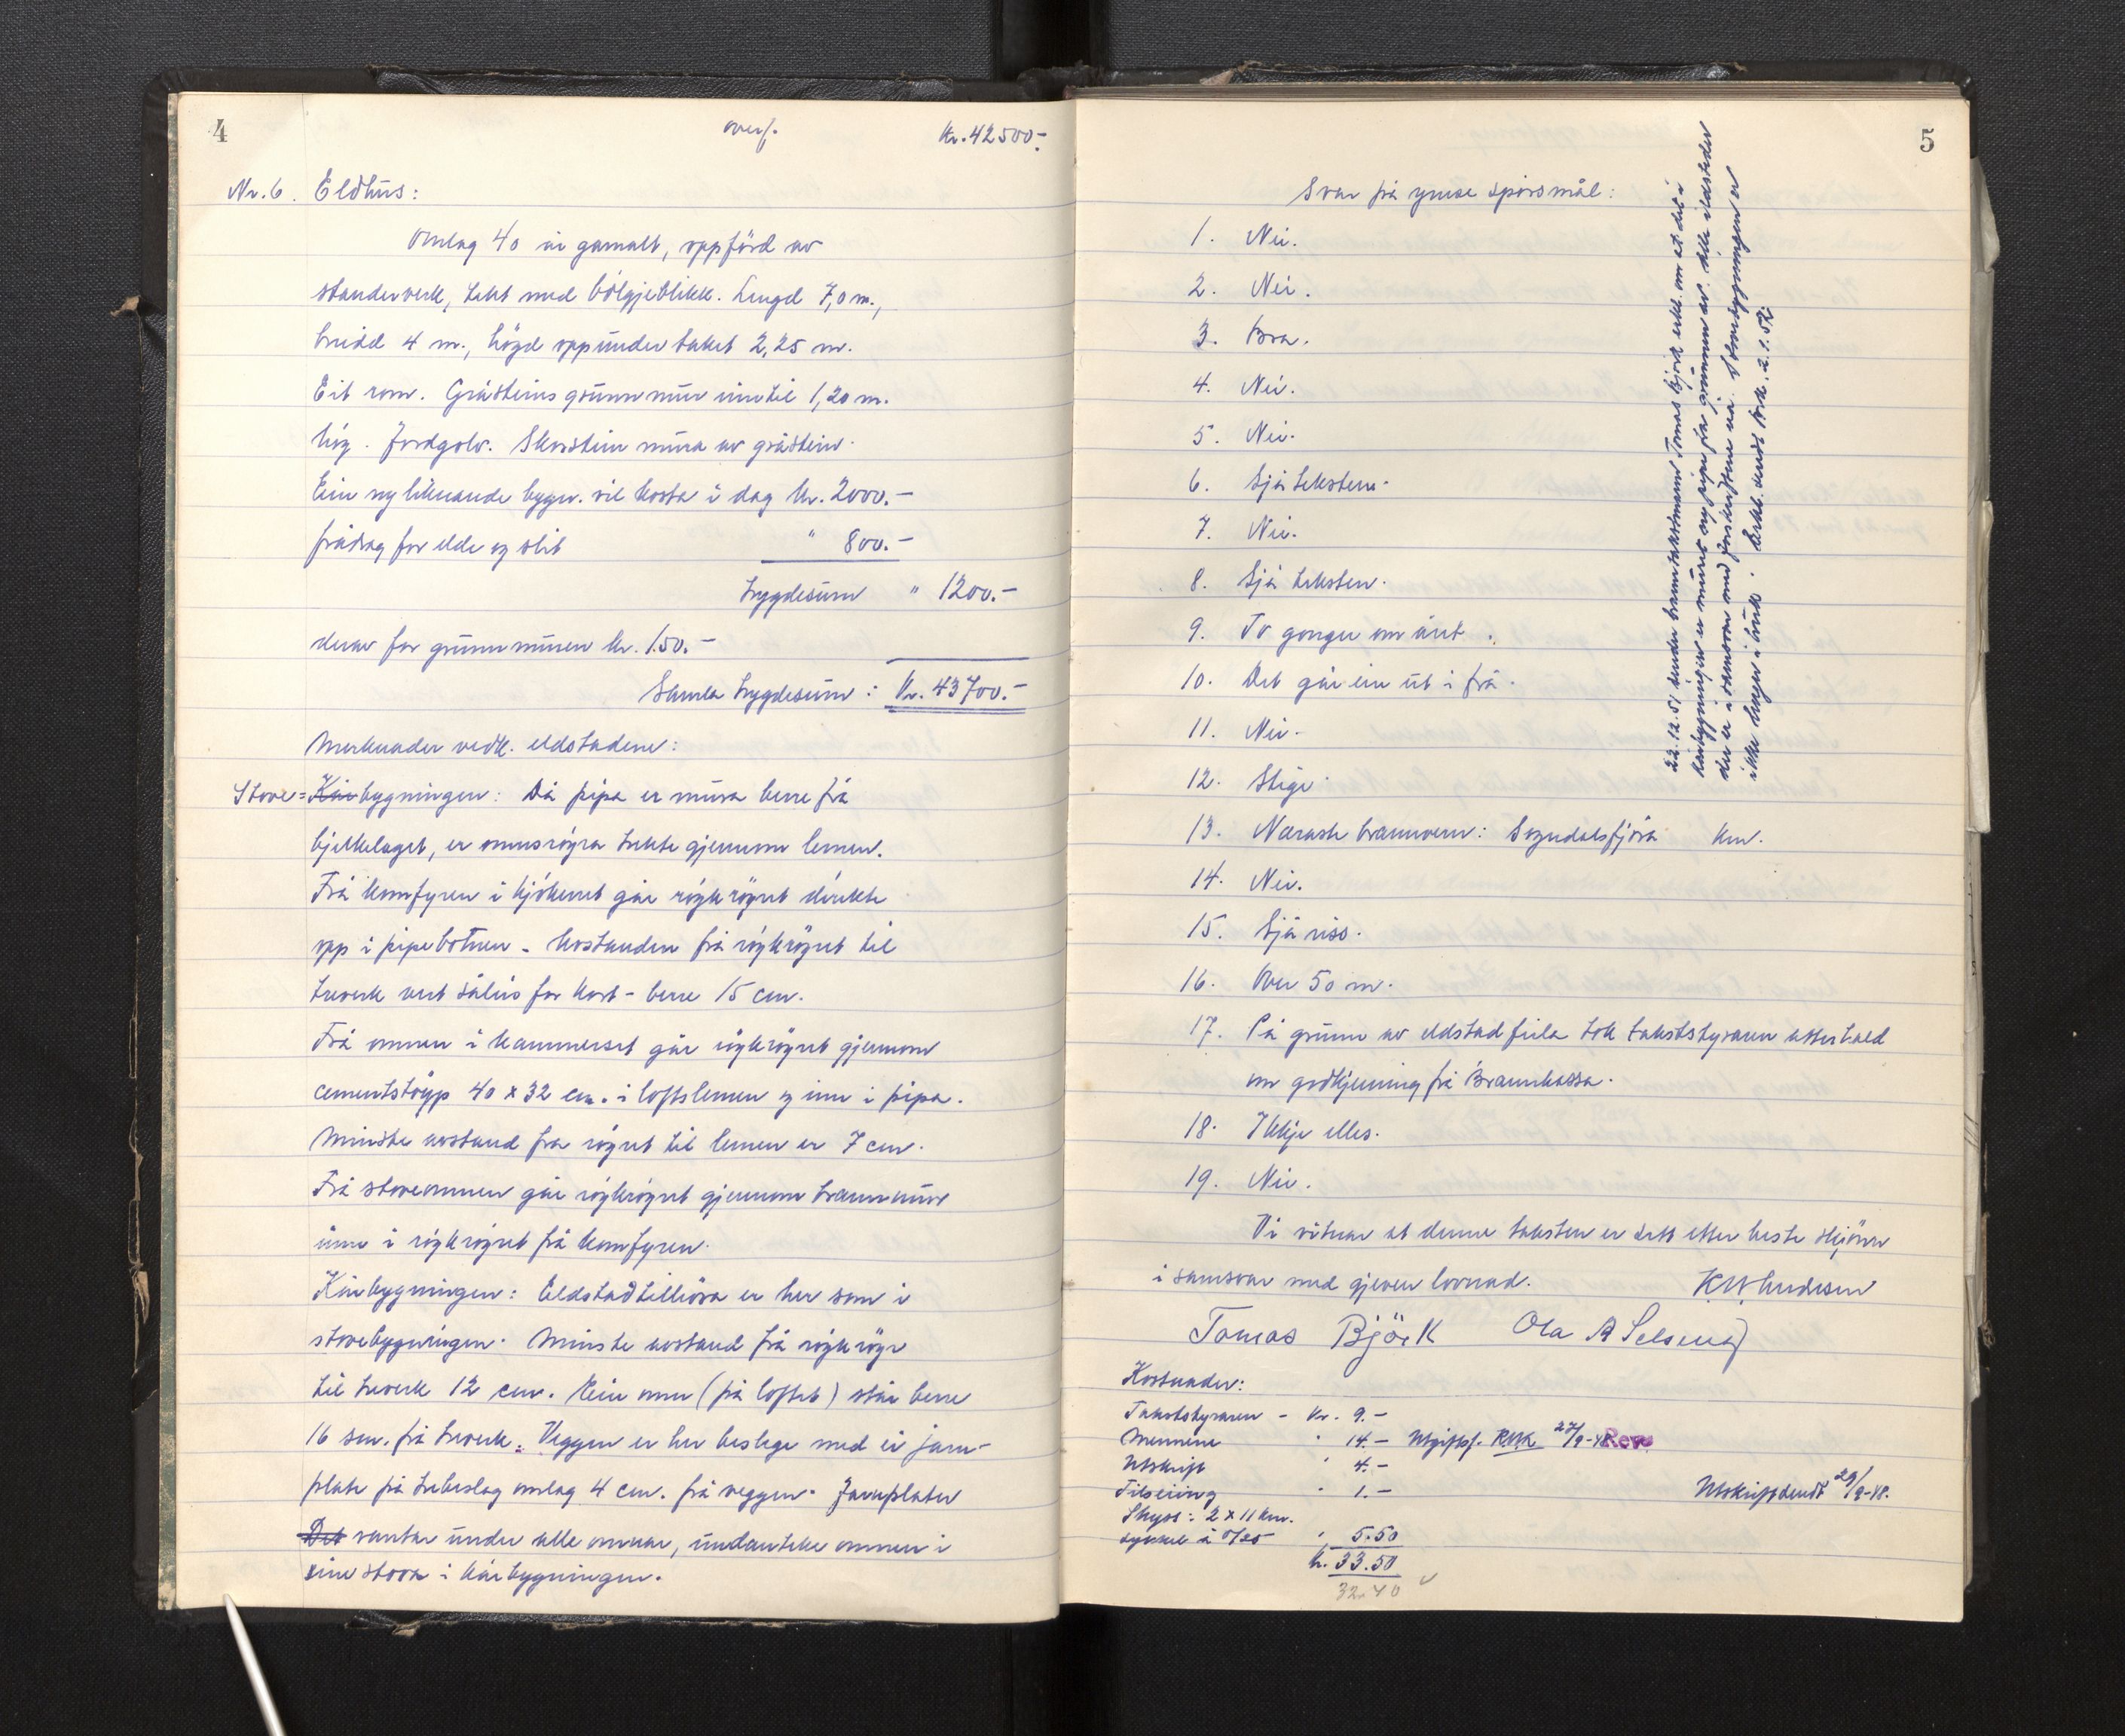 4
overf. Kr. 42500.-
Nr. 6. Eldhus:
Omlag 40 år gamalt, oppförd av
standerverk, tekt med bölgjeblikk. Lengd 7,0 m.,
breidd 4 m., högd oppunder taket 2,25 m.
Eit rom. Gråsteins grunnmur inntil 1,20 m.
hög. Jordgolv. Skorstein mura av gråstein.
Ein ny liknande bygn. vil kosta i dag kr. 2000.-
frådrag for elde og slit " 800.-
trygdesum " 1200.-
derav for grunnmuren kr. 150.-
Samla trygdesum: Kr. 43700.-
Merknader vedk. eldstadene:
Stove= Kårbygningen: Då pipa er mura berre frå
bjelkelaget, er omnsröyra tekte gjennom lemen.
Frå komfyren i kjökenet går röykröyret direkte
opp i pipebotnen - Avstanden frå röykröyret til
treverk vert såleis for kort - berre 15 cm.
Frå omnen i kammerset går röykröyret gjennom
cementstöyp 40 x 32 cm. i loftslemen og inn i pipa.
Minste avstand fra röyret til lemen er 7 cm.
Frå stoveomnen går röykröyret gjennom brannmur
inn i röykröyret frå komfyren.
Kårbygningen: Eldstadtilhöva er her som i
stovebygningen. Minste avstand frå röykröyr
til treverk 12 cm. Ein omn (på loftet) står berre
16 sm. frå treverk. Veggen er her beslege med ei jarn-
plate på trebeslag omlag 4 cm. frå veggen. Jarnplater
Det vantar under alle omnar, undanteke omnen i
eine stova i kårbygningen.
5
Svar på ymse spörsmål:
1. Nei.
2. Nei.
3. Bra.
4. Nei.
5. Nei.
6. Sjå teksten.
7. Nei.
8. Sjå teksten.
9. To gonger om året.
10. Det går ein ut i frå.
11. Nei.
12. Stige.
13. Næraste brannvern: Sogndalsfjöra km.
14. Nei.
15. Sjå riss.
16. Over 50 m.
17. På grunn av eldstadfeila tok takststyraren atterhald
om godkjenning frå Brannkassa.
18. Ikkje elles.
19. Nei.
Vi vitnar at denne taksten er sett etter beste skjönn
i samsvar med gjeven lovnad. K W Andersen
Tomas Björk Ola A Selseng
Kostnader:
Takststyraren - Kr. 9.-
Mennene " 14.- Utgiftsf. RWK 27/9-48 Rev.
Utskrift " 4.-
Tilseiing " 1.-
Utskrift sendt 29/9-48.
Skyss: 2 x 11 km.
sykkel à 0/25 " 5.50
kr. 33.50
32.40
22.12.51 sender branntakstmann Tomas Bjørk erkl. om at det i
kårbygningen er muret ny pipe fra grunnen av. Alle ildsteder
der er i samsvar med forskriftene nå. Stovebygningen er
ikke lenger i bruk. Erkl. sendt Brk. 2.1.52.